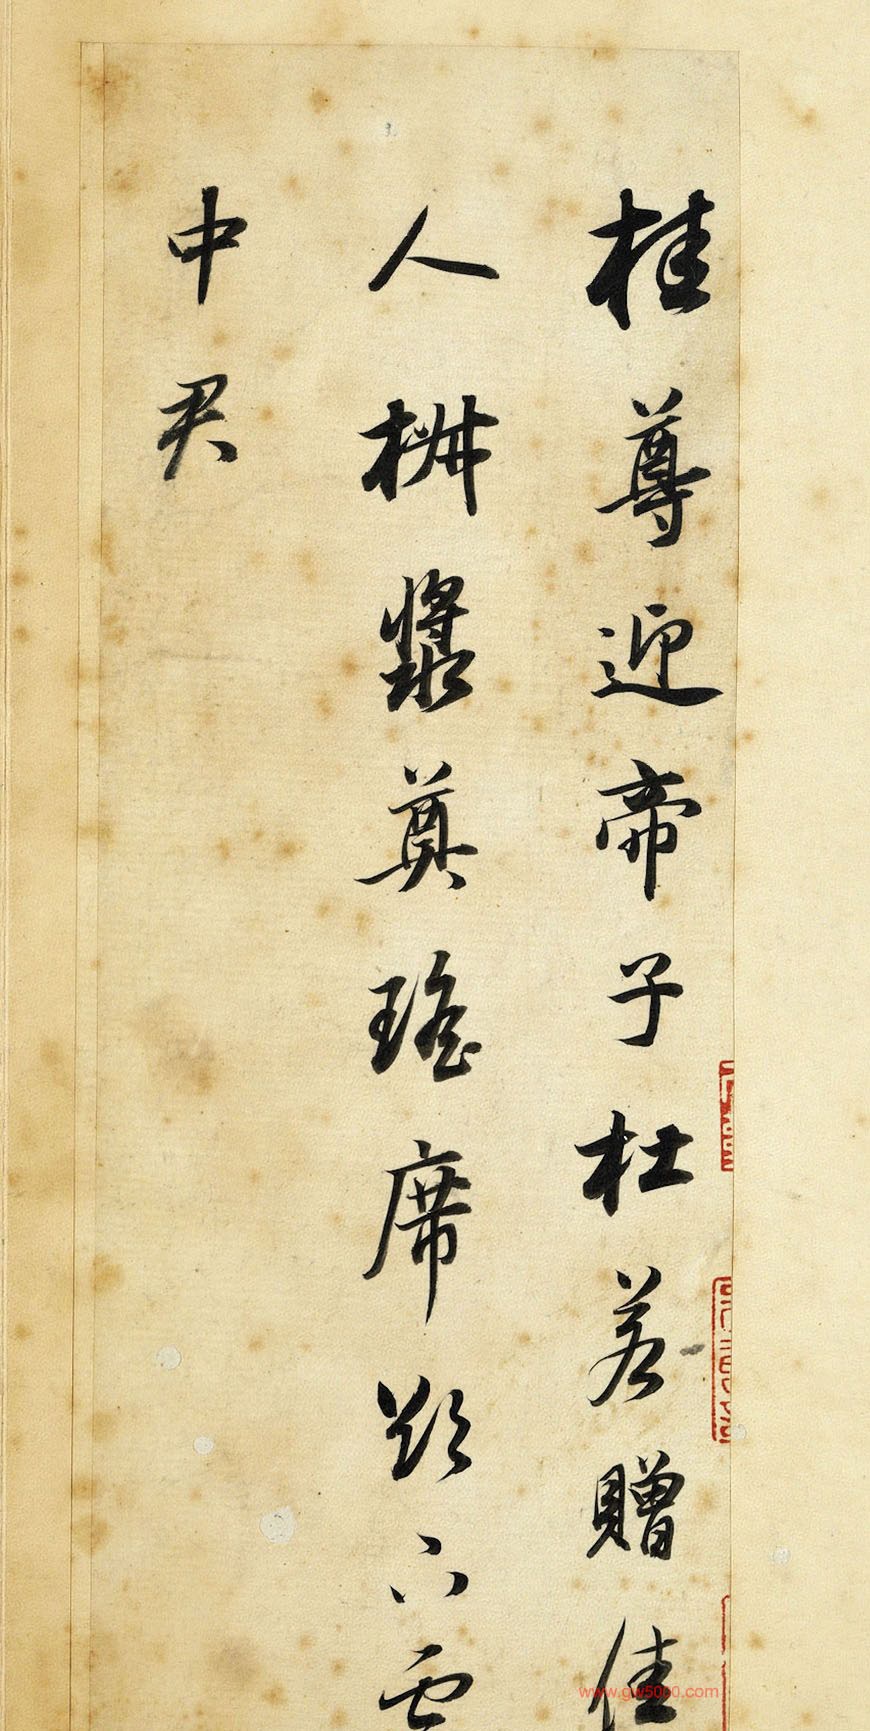 桂尊迎帝子杜若贈佳
人椒漿奠瑤席欲下雲
中君
www.gw5000.com